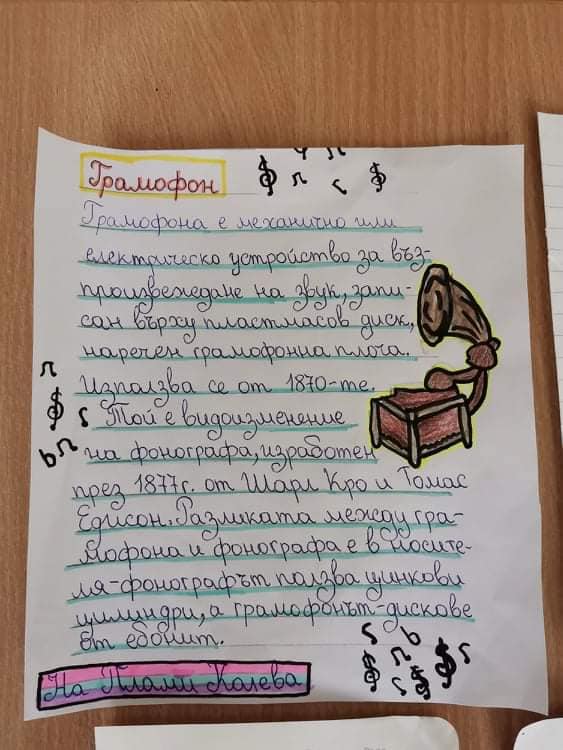 Грамофон
Грамофона е механично или
електрическо устройство за въз-
произвеждане на звук, запи-
сан върху пластмасов диск,
наречен грамофонна плоча.
Използва се от 1870-те.
Той е видоизменение
на фонографа, изработен
през 1877г. от Шарл Кро и Томас
Едисон. Разликата между гра-
мофона и фонографа е в носите-
ля-фонографът ползва цинкови
цилиндри, а грамофонът-дискове
от ебонит.
На Плами Калева